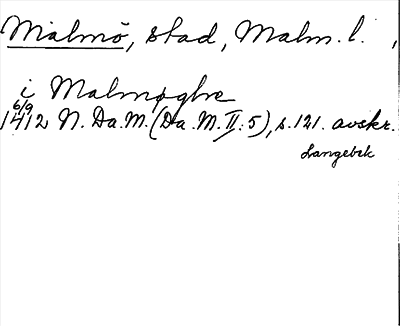 Malmö, stad, Malm. l.,
i Malmøghæ
6/9
1412 N. Da. M. (Da. M. II: 5), s. 121. avskr.
Langebek